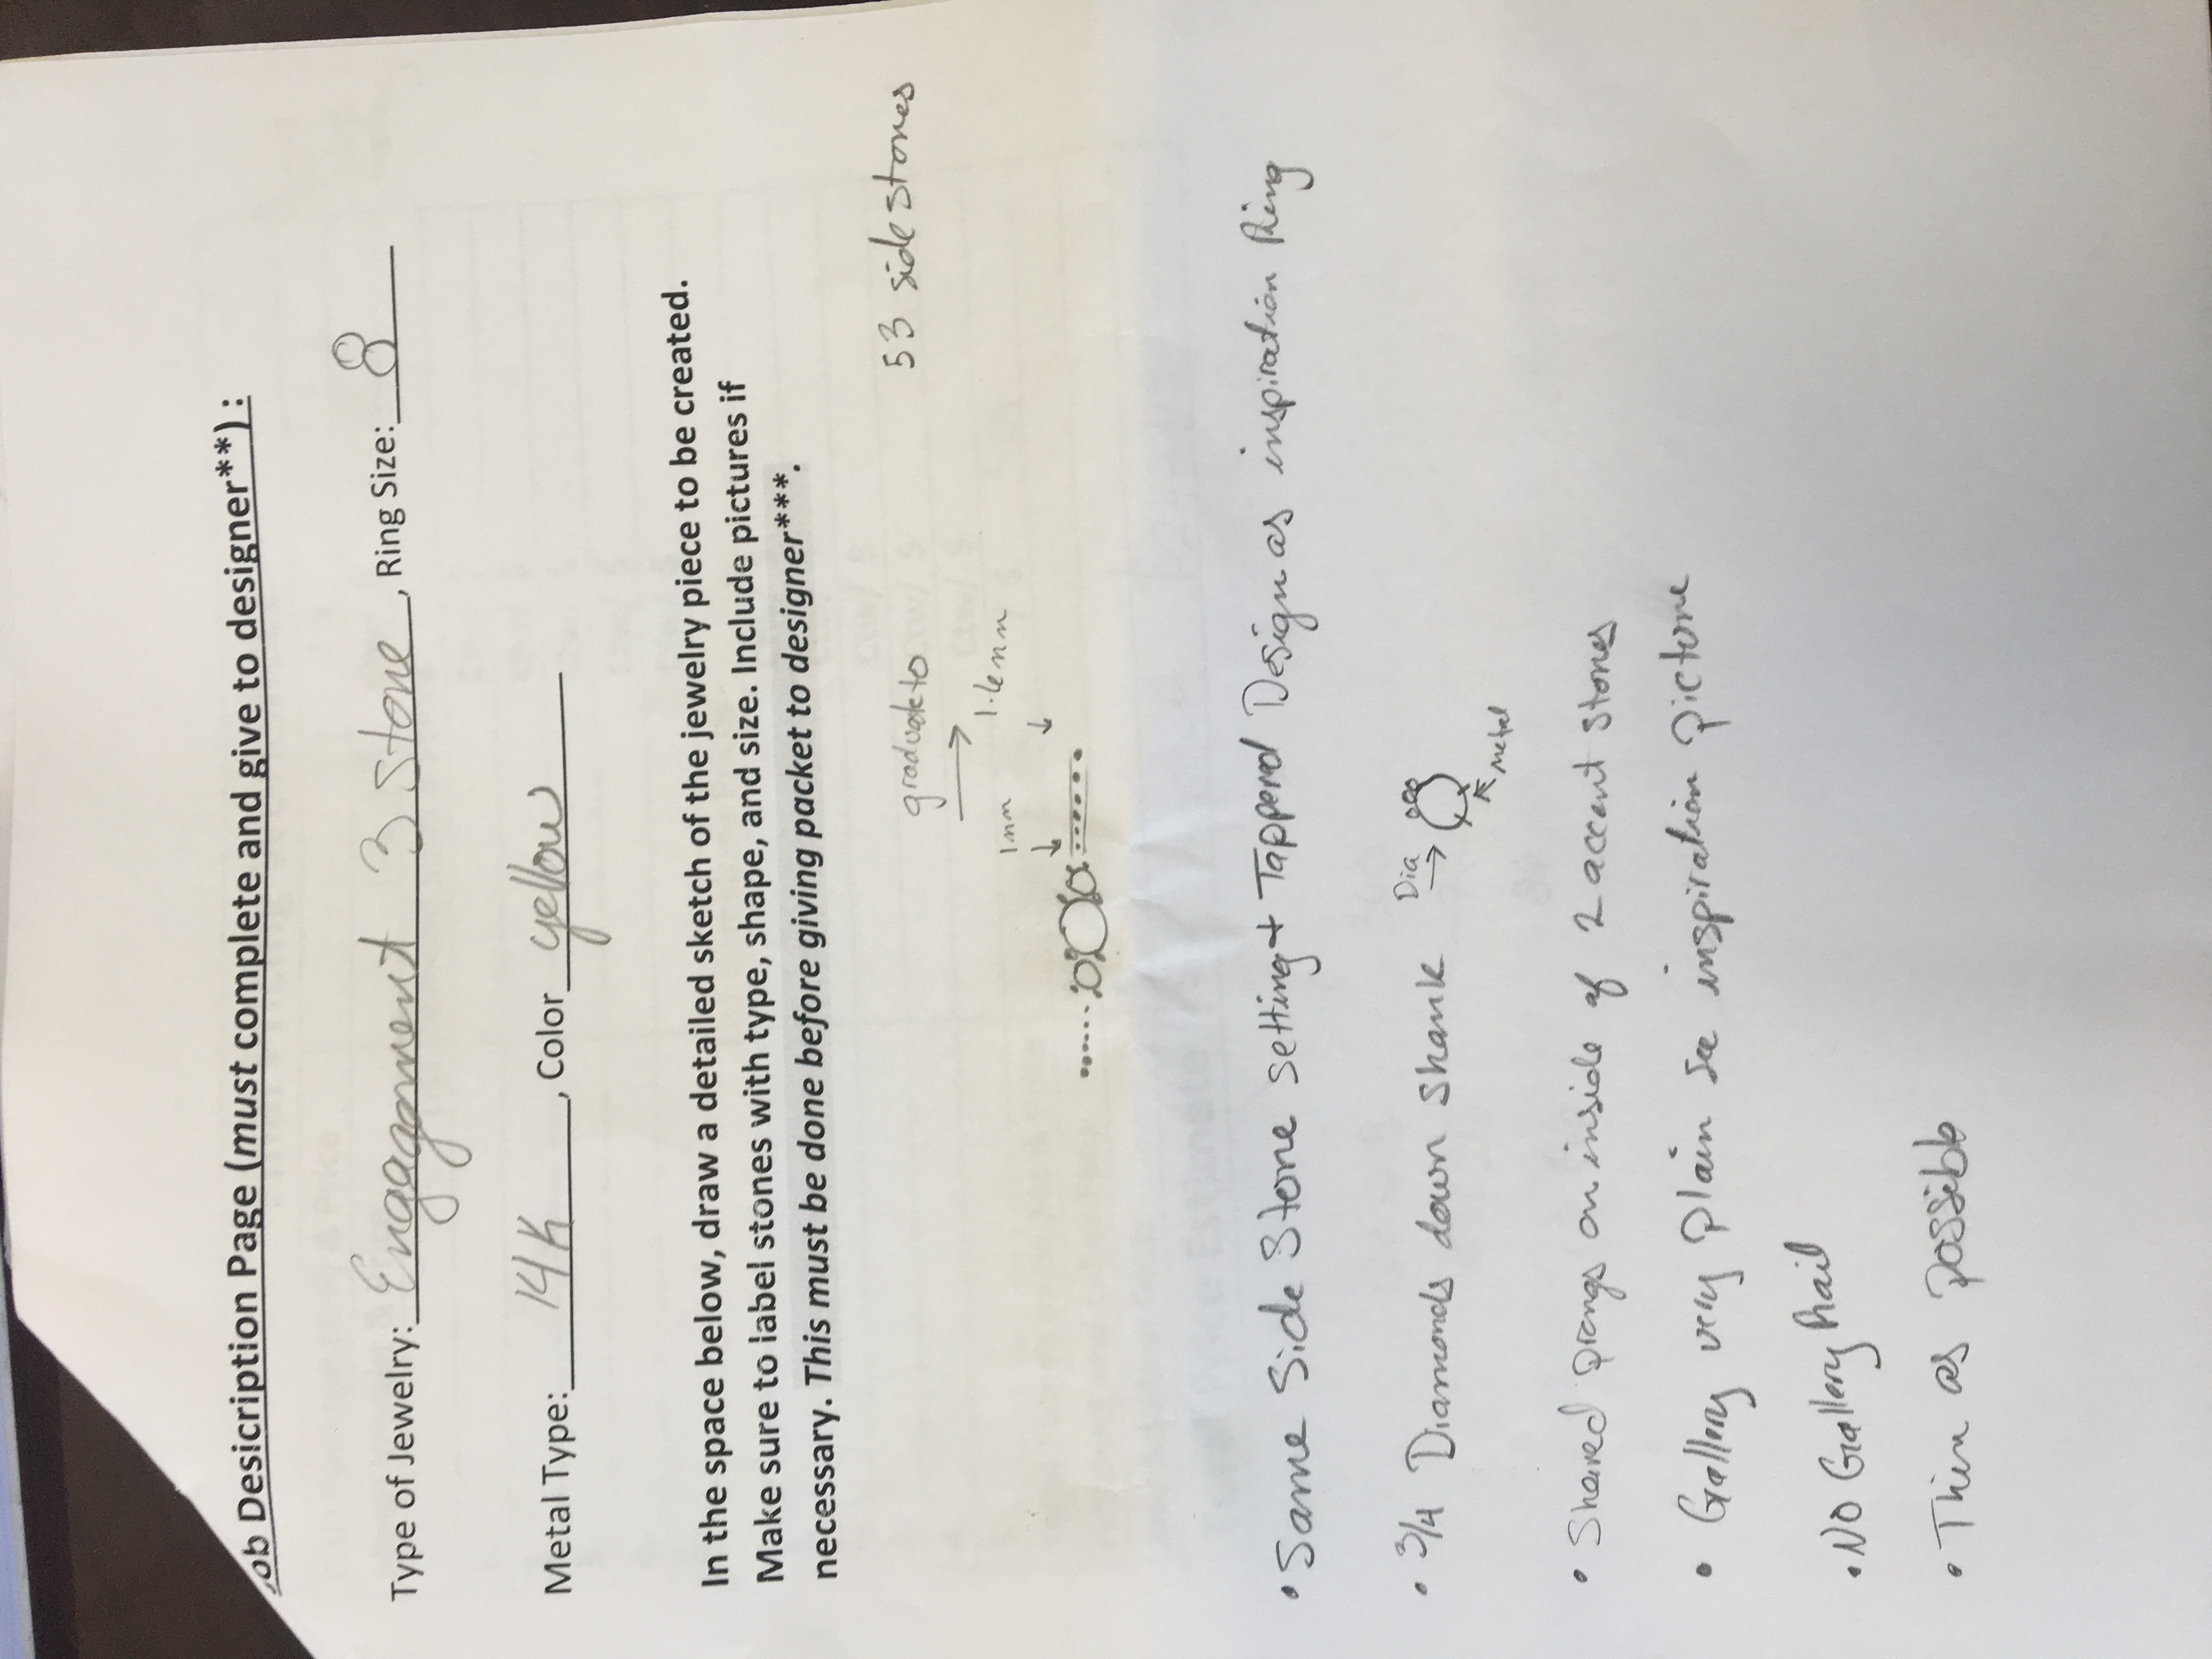 ob Desicription Page (must complete and give to designer**) :
Type of Jewelry: Engagement 3 Stone, Ring Size: 8
Metal Type: 14K, Color yellow
In the space below, draw a detailed sketch of the jewelry piece to be created.
Make sure to label stones with type, shape, and size. Include pictures if
necessary. This must be done before giving packet to designer***.
53 side stones
graduate to
1mm
1.6mm
• Same Side Stone setting + Tappered Design as inspiration Ring
• 3/4 Diamonds down Shank
Dia
Metal
• Shared prongs on inside of 2 accent stones
• Gallery very plain see inspiration picture
• NO Gallery Rail
• Thin as possible